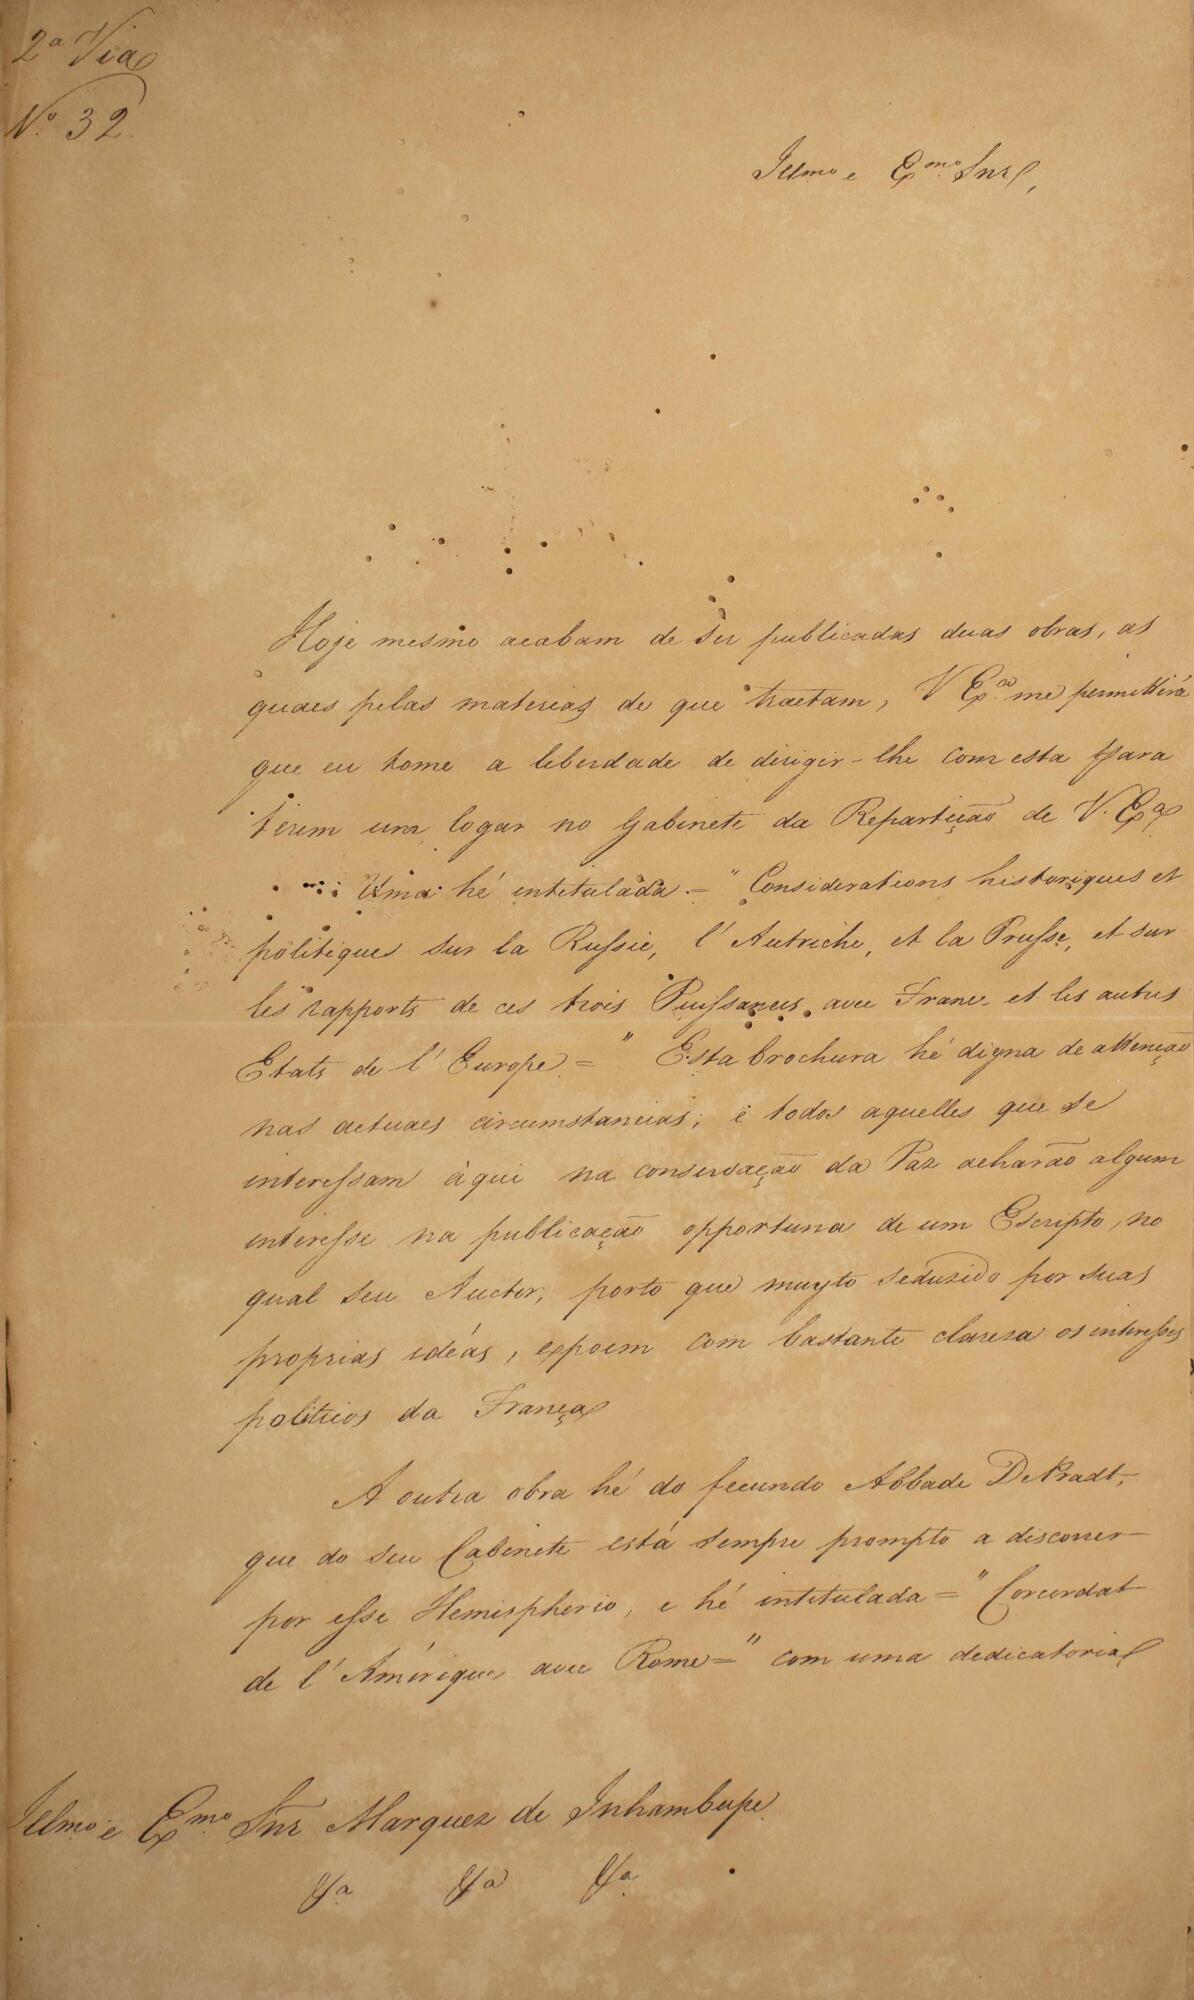 2ª Via
Nº 32.
Illmo e Exmo Snr,
Hoje mesmo acabam de ser publicadas duas obras, as
quaes pelas materias de que tractam, V Exca me permittirá
que eu tome a liberdade de dirigir-lhe com esta para
terem um logar no Gabinete da Repartição de V. Exa
Uma hé intitulada = " Considerations historiques et
politiques sur la Russie, l'Autriche, et la Prusse, et sur
les rapports de ces trois Puissances avec France et les autres
Etats de l'Europe = " Esta brochura hé digna de attenção
nas actuaes circumstancias; e todos aquelles que se
interessam àqui na conservação da Paz acharão algum
interesse na publicação opportuna de um Escripto, no
qual seu Auctor, posto que muyto seduzido por suas
proprias idéas, expoem com bastante clareza os interesses
politicos da França
A outra obra hé do fecundo Abbade De Pradt,
que do seu Cabinete está sempre prompto a discorrer
por esse Hemispherio, e hé intitulada = " Concordat
de l'Amérique avec Rome = " com uma dedicatoria
Illmo e Exmo Snr Marquez de Inhambupe
&a &a &a